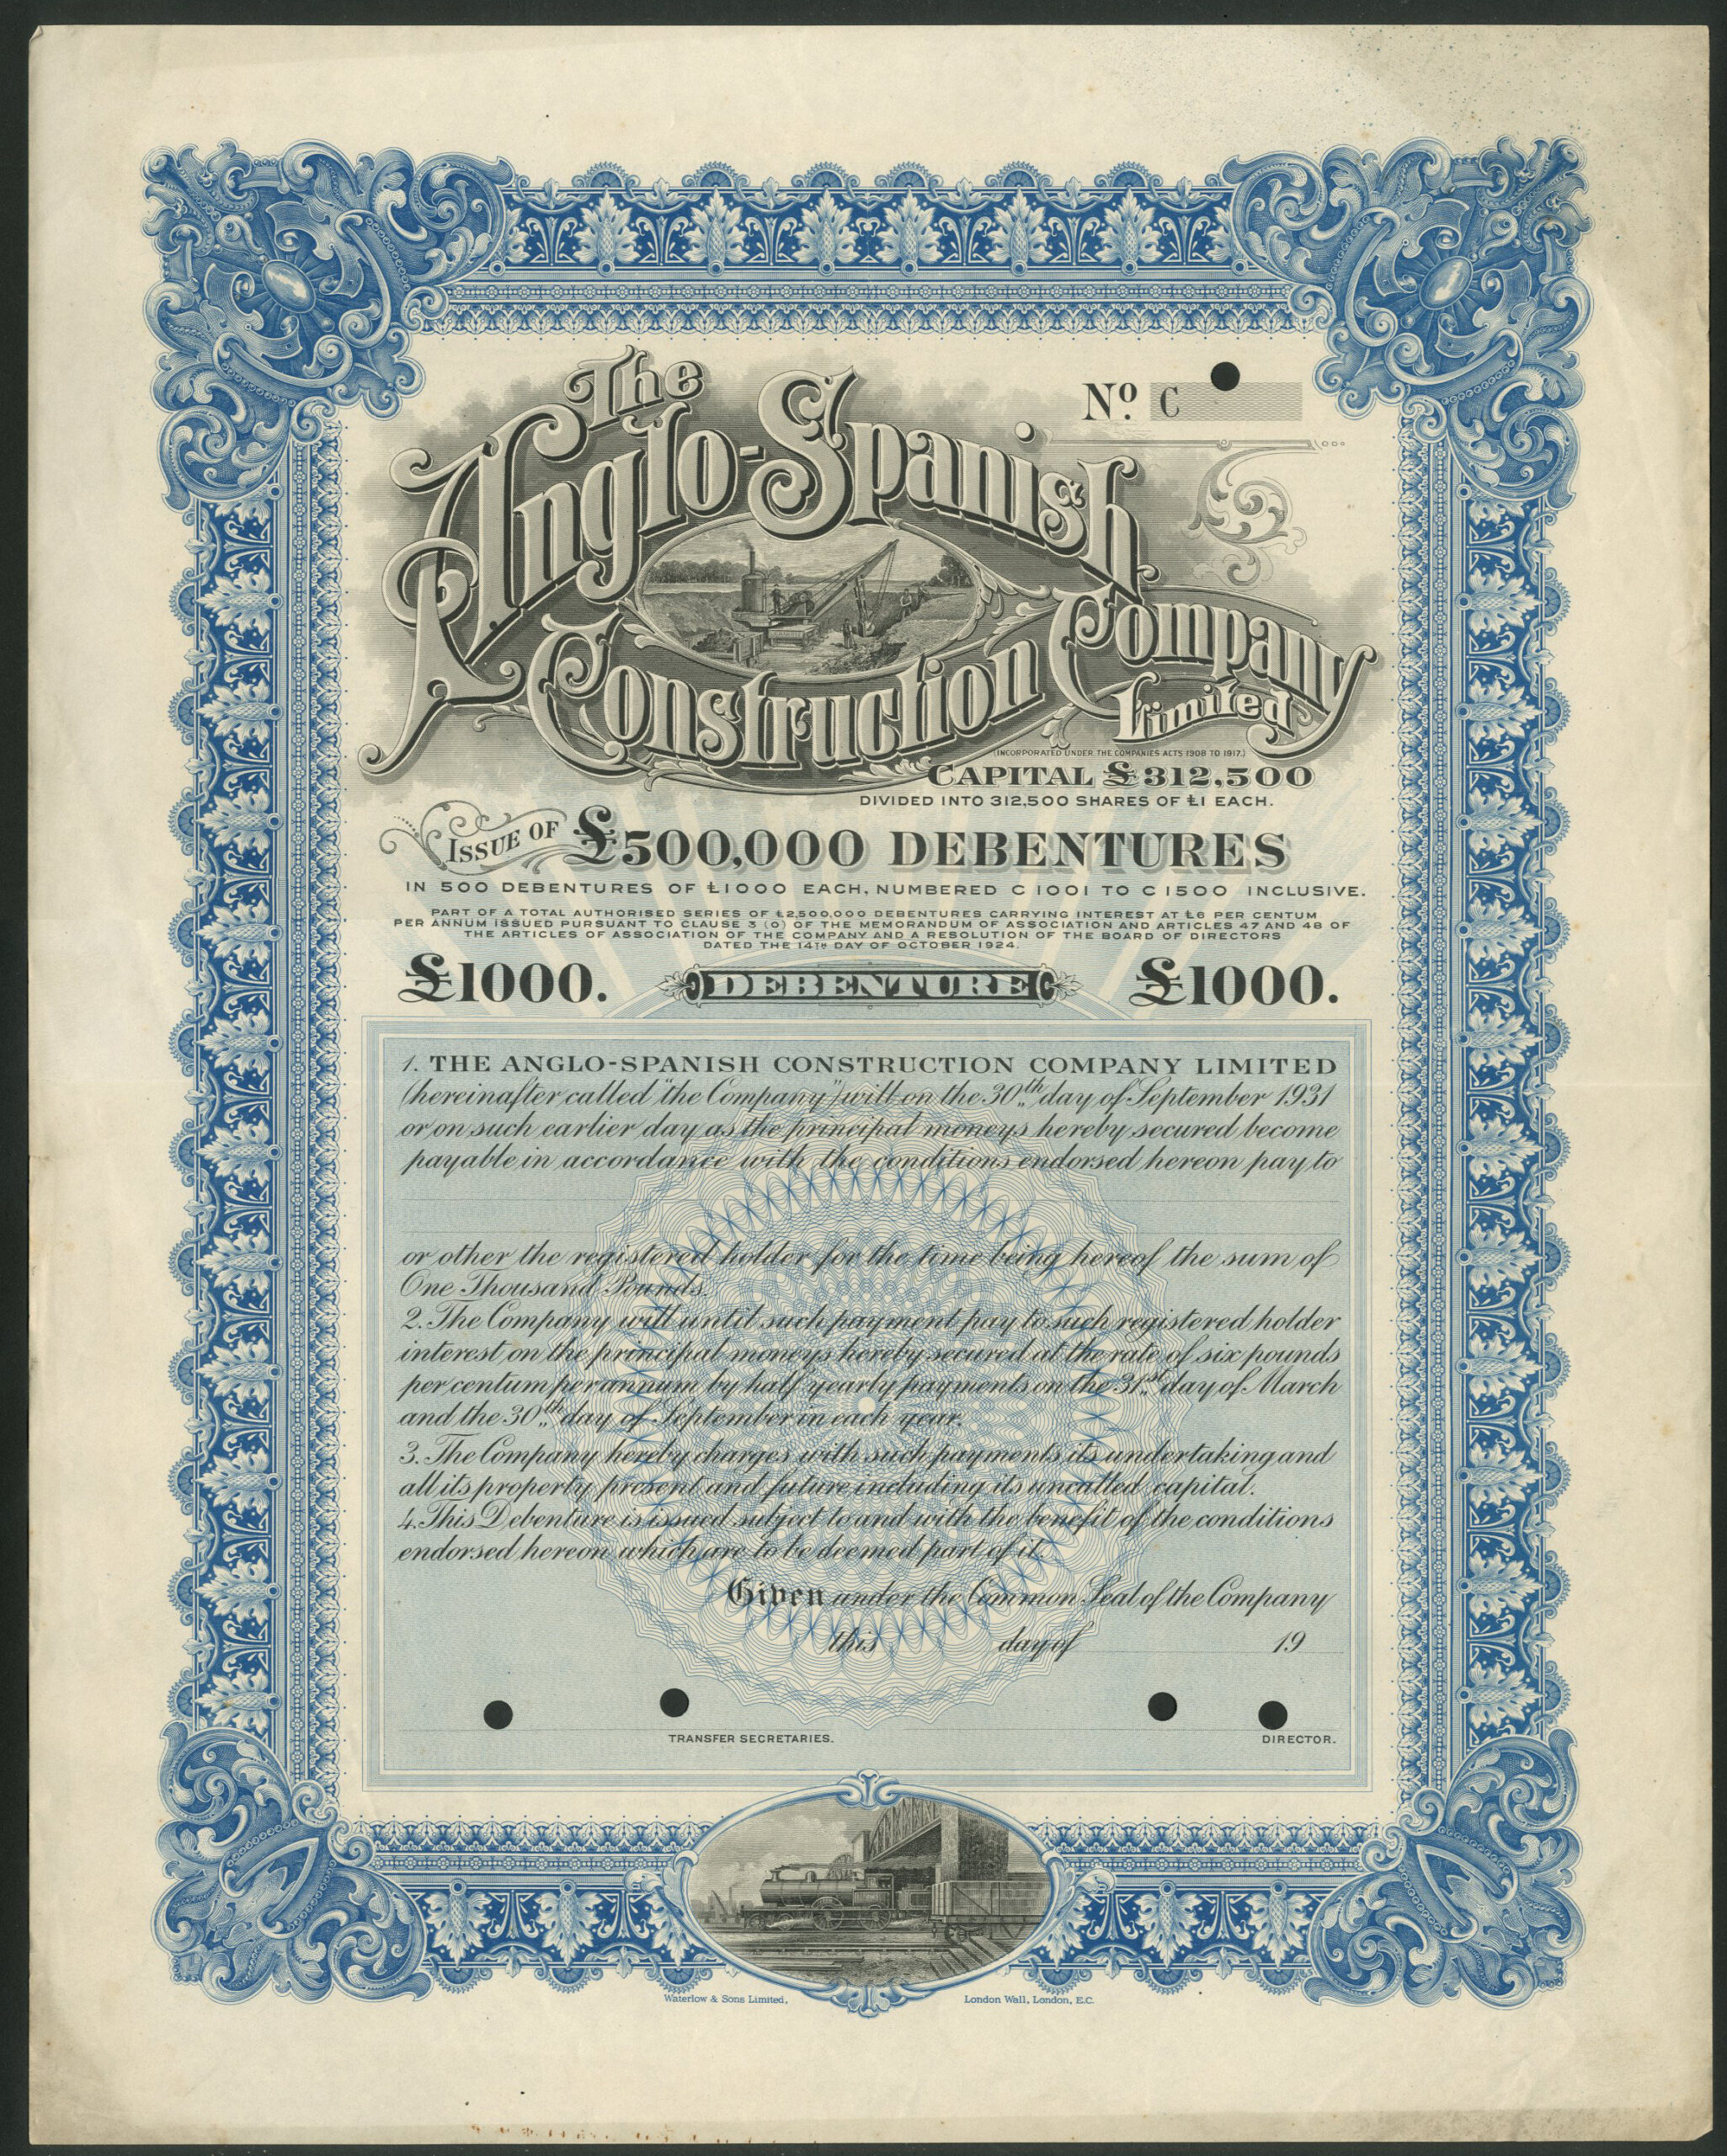 The
Anglo-Spanish
Construction Company
Limited
No. C
(INCORPORATED UNDER THE COMPANIES ACTS 1908 TO 1917.)
CAPITAL £312,500
DIVIDED INTO 312,500 SHARES OF £1 EACH.
ISSUE OF £500,000 DEBENTURES
IN 500 DEBENTURES OF £1000 EACH, NUMBERED C 1001 TO C 1500 INCLUSIVE.
PART OF A TOTAL AUTHORISED SERIES OF £2,500,000 DEBENTURES CARRYING INTEREST AT £6 PER CENTUM
PER ANNUM ISSUED PURSUANT TO CLAUSE 3 (O) OF THE MEMORANDUM OF ASSOCIATION AND ARTICLES 47 AND 48 OF
THE ARTICLES OF ASSOCIATION OF THE COMPANY AND A RESOLUTION OF THE BOARD OF DIRECTORS
DATED THE 14TH DAY OF OCTOBER 1924.
£1000. DEBENTURE £1000.
1. THE ANGLO-SPANISH CONSTRUCTION COMPANY LIMITED
(hereinafter called "the Company") will on the 30th day of September 1931
or on such earlier day as the principal moneys hereby secured become
payable in accordance with the conditions endorsed hereon pay to
or other the registered holder for the time being hereof the sum of
One Thousand Pounds.
2. The Company will until such payment pay to such registered holder
interest on the principal moneys hereby secured at the rate of six pounds
per centum per annum by half yearly payments on the 31st day of March
and the 30th day of September in each year.
3. The Company hereby charges with such payments its undertaking and
all its property present and future including its uncalled capital.
4. This Debenture is issued subject to and with the benefit of the conditions
endorsed hereon which are to be deemed part of it.
Given under the Common Seal of the Company
this day of 19
TRANSFER SECRETARIES. DIRECTOR.
Waterlow & Sons Limited, London Wall, London, E.C.